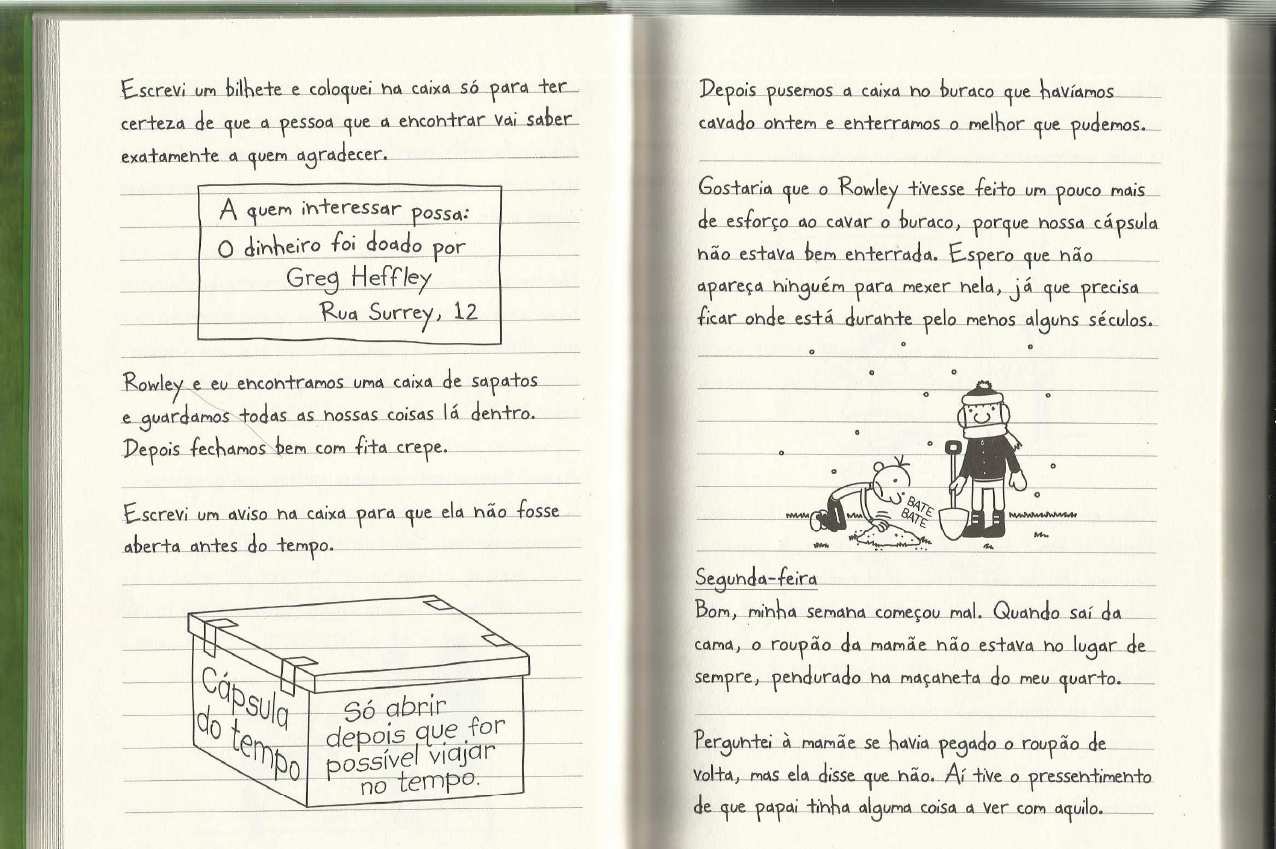 Escrevi um bilhete e coloquei na caixa só para ter
certeza de que a pessoa que a encontrar vai saber
exatamente a quem agradecer.
A quem interessar possa:
O dinheiro foi doado por
Greg Heffley
Rua Surrey, 12
Rowley e eu encontramos uma caixa de sapatos
e guardamos todas as nossas coisas lá dentro.
Depois fechamos bem com fita crepe.
Escrevi um aviso na caixa para que ela não fosse
aberta antes do tempo.
Cápsula
do tempo
Só abrir
depois que for
possível viajar
no tempo.
Depois pusemos a caixa no buraco que havíamos
cavado ontem e enterramos o melhor que pudemos.
Gostaria que o Rowley tivesse feito um pouco mais
de esforço ao cavar o buraco, porque nossa cápsula
não estava bem enterrada. Espero que não
apareça ninguém para mexer nela, já que precisa
ficar onde está durante pelo menos alguns séculos.
BATE
BATE
Segunda-feira
Bom, minha semana começou mal. Quando saí da
cama, o roupão da mamãe não estava no lugar de
sempre, pendurado na maçaneta do meu quarto.
Perguntei à mamãe se havia pegado o roupão de
volta, mas ela disse que não. Aí tive o pressentimento
de que papai tinha alguma coisa a ver com aquilo.